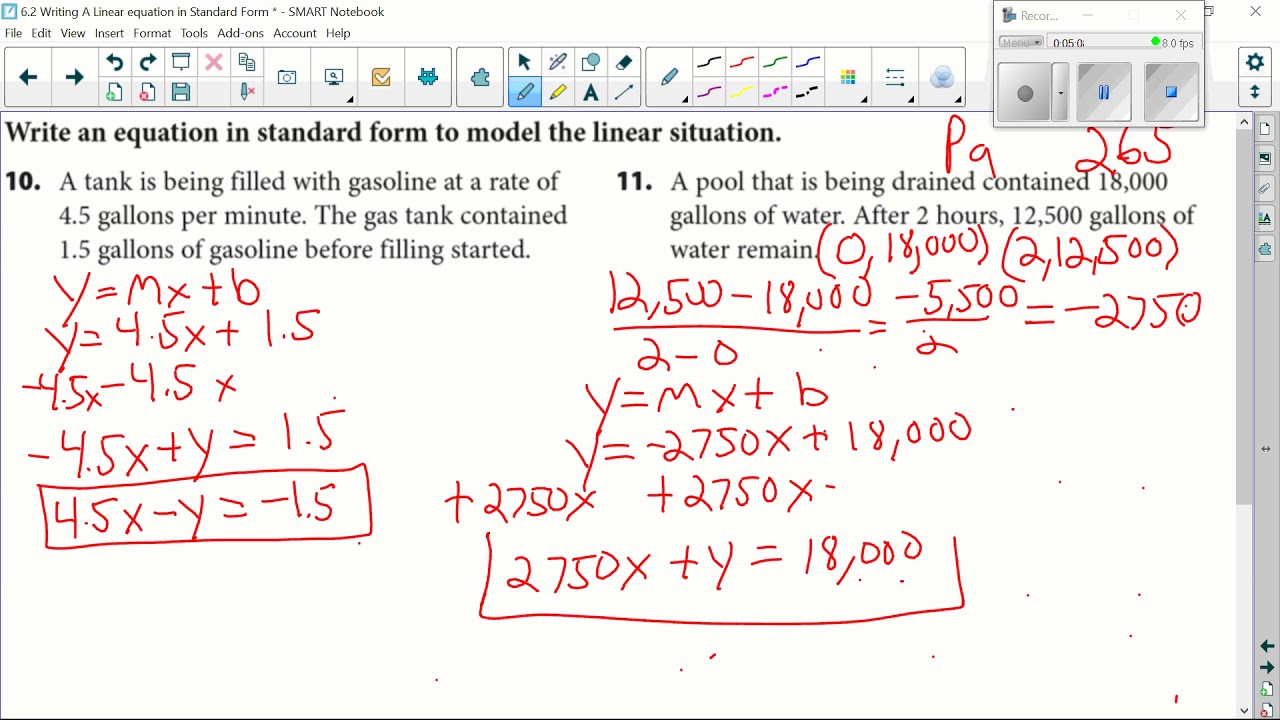 6.2 Writing A Linear equation in Standard Form * - SMART Notebook
File Edit View Insert Format Tools Add-ons Account Help
Recor...
Menu
00:05:0
8.0 fps
A
Write an equation in standard form to model the linear situation.
Pg 265
10. A tank is being filled with gasoline at a rate of
4.5 gallons per minute. The gas tank contained
1.5 gallons of gasoline before filling started.
y = mx + b
y = 4.5x + 1.5
-4.5x -4.5x
-4.5x + y = 1.5
4.5x - y = -1.5
11. A pool that is being drained contained 18,000
gallons of water. After 2 hours, 12,500 gallons of
water remain. (0, 18,000) (2, 12,500)
12,500 - 18,000 = -5,500 = -2750
2 - 0 2
y = mx + b
y = -2750x + 18,000
+2750x +2750x
2750x + y = 18,000